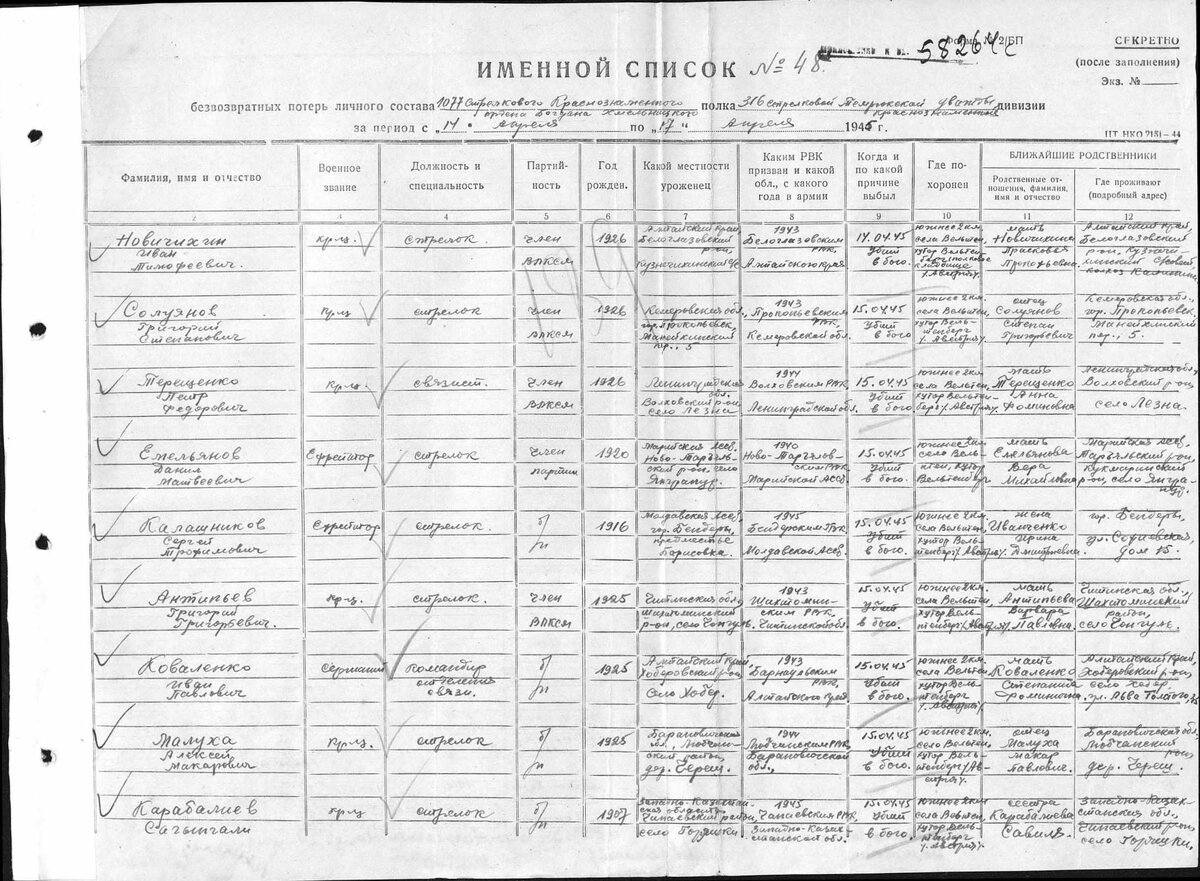 Форма № 2/БП
СЕКРЕТНО
58264с
(после заполнения)
Экз. №
ИМЕННОЙ СПИСОК № 48.
безвозвратных потерь личного состава 1077 Стрелкового Краснознаменного ордена Богдана Хмельницкого полка 316 стрелковой Темрюкской дважды Краснознаменной дивизии
за период с „14“ Апреля по „17“ Апреля 1945 г.
ЦТ НКО 2181–44
Фамилия, имя и отчество
Военное звание
Должность и специальность
Партийность
Год рожден.
Какой местности уроженец
Каким РВК призван и какой обл., с какого года в армии
Когда и по какой причине выбыл
Где похоронен
БЛИЖАЙШИЕ РОДСТВЕННИКИ
Родственные отношения, фамилия, имя и отчество
Где проживают (подробный адрес)
2 3 4 5 6 7 8 9 10 11 12
Новичихин Иван Тимофеевич
кр-ц
стрелок
член ВЛКСМ
1926
Алтайский край, Белоглазовский р-он, Кузничихинский с/с
1943 Белоглазовским РВК Алтайского края
14.04.45 Убит в бою.
южнее 2 км села Вельтен, хутор Вельтенберг
мать Новичихина Прасковья Прокофьевна
Алтайский край, Белоглазовский р-он,
Солуянов Григорий Степанович
кр-ц
стрелок
член ВЛКСМ
1926
Кемеровская обл, гор. Прокопьевск, Манеихинский пер., 5
1943 Прокопьевским РВК, Кемеровской обл.
15.04.45 Убит в бою
южнее 2 км. села Вельтен, хутор Вельтенберг /Австрия/
отец Солуянов Степан Григорьевич
Кемеровская обл., гор. Прокопьевск, Манеихинский пер., 5.
Терещенко Петр Федорович
кр-ц
связист.
член ВЛКСМ
1926
Ленинградская обл. Волховский р-он, село Лезна
1944 Волховским РВК Ленинградской обл.
15.04.45 Убит в бою
южнее 2 км. села Вельтен, хутор Вельтенберг /Австрия/
мать Терещенко Анна Фоминовна
Ленинградская обл Волховский р-он, село Лезна.
Емельянов Данил Матвеевич
Ефрейтор
стрелок
член партии
1920
Марийская АССР, Ново-Торъяльский р-он, село Янгранур.
1940 Ново-Торъяловским РВК Марийской АССР
15.04.45 Убит в бою.
южнее 2 км. село Вельтен, хутор Вельтенберг
мать Емельянова Вера Михайловна
Марийская АССР, Торъяльский р-он, Кукмаринский р-он, село Янгранур.
Калашников Сергей Трофимович
Ефрейтор
стрелок.
б/п
1916
Молдавская АССР, гор. Бендеры, предместье Борисовка.
1945 Бендерским ГВК Молдавской АССР
15.04.45 Убит в бою.
южнее 2 км. села Вельтен, хутор Вельтенберг /Австрия/
жена Иванченко Ирина Дмитриевна.
гор. Бендеры, ул. Софиевская, дом 15.
Антипьев Григорий Григорьевич.
кр-ц.
стрелок.
член ВЛКСМ
1925
Читинская обл, Шахтоминский р-он, село Чонгуль.
1943 Шахтоминским РВК, Читинской обл.
15.04.45 Убит в бою.
южнее 2 км. села Вельтен, хутор Вельтенберг /Австрия/
мать Антипьева Варвара Павловна.
Читинская обл., Шахтоминский район, село Чонгуль.
Коваленко Иван Павлович
сержант
командир отделения связи.
б/п
1925
Алтайский край Хоберовский р-он, село Хобер.
1943 Барнаульским РВК, Алтайского края
15.04.45 Убит в бою.
южнее 2 км села Вельтен, хутор Вельтенберг /Австрия/
мать Коваленко Степанида Фоминична
Алтайский край Хоберовский р-он, село Хобер, ул. Льва Толстого,
Малуха Алексей Макарович
кр-ц.
стрелок
б/п
1925
Барановичская обл., Любчанский район, дер. Береш.
1944 Любчанским РВК Барановичской обл.,
15.04.45 Убит в бою.
южнее 2 км. село Вельтен, хутор Вельтенберг /Австрия/.
отец Малуха Макар Павлович.
Барановичская обл Любчанский р-он, дер. Череш.
Карабалиев Сагынгали
кр-ц
стрелок
б/п
1907
Западно-Казахстанская область, Чапаевский район, село Горячки
1945 Чапаевским РВК, Западно-Казахстанской обл.
15.04.45 Убит в бою.
южнее 2 км села Вельтен, хутор Вельтенберг /Австрия/.
сестра Карабалиева Савиля.
Западно-Казахстанская обл., Чапаевский р-он, село Горячки.